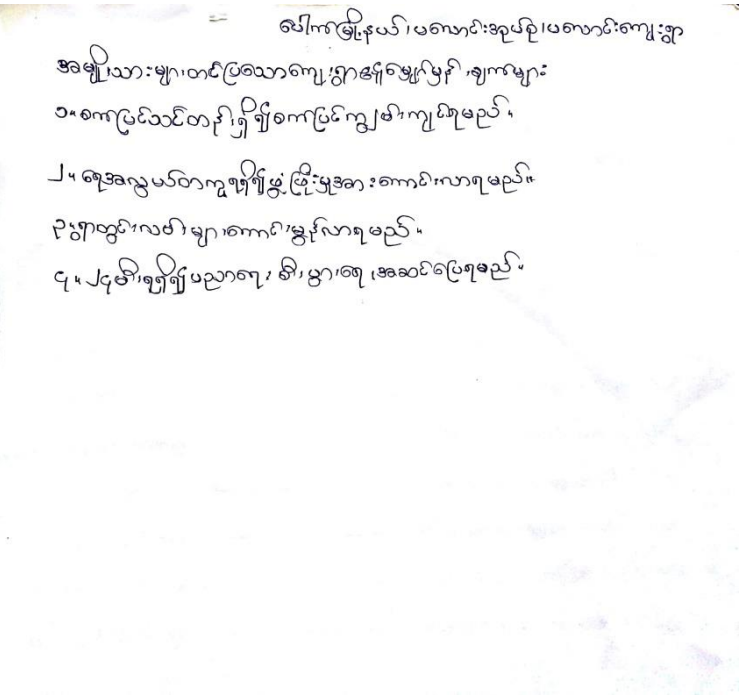 ပေါက်မြို့နယ်၊ပလောင်းအုပ်စု၊ပလောင်းကျေးရွာ
အမျိုးသားများတင်ပြသောကျေးရွာမျှော်မှန်းချက်များ
၁။စကားပြင်သင်တန်းရှိ၍စကားပြင်ကျွမ်းကျင်ရမည်။
၂။ရေအလွယ်တကူရရှိ၍ဖွံ့ဖြိုးမှုအားကောင်းလာရမည်။
၃။ရွာတွင်းလမ်းများကောင်းမွန်လာရမည်။
၄။၂၄မီးရရှိ၍ပညာရေး၊စီးပွားရေးအဆင်ပြေရမည်။